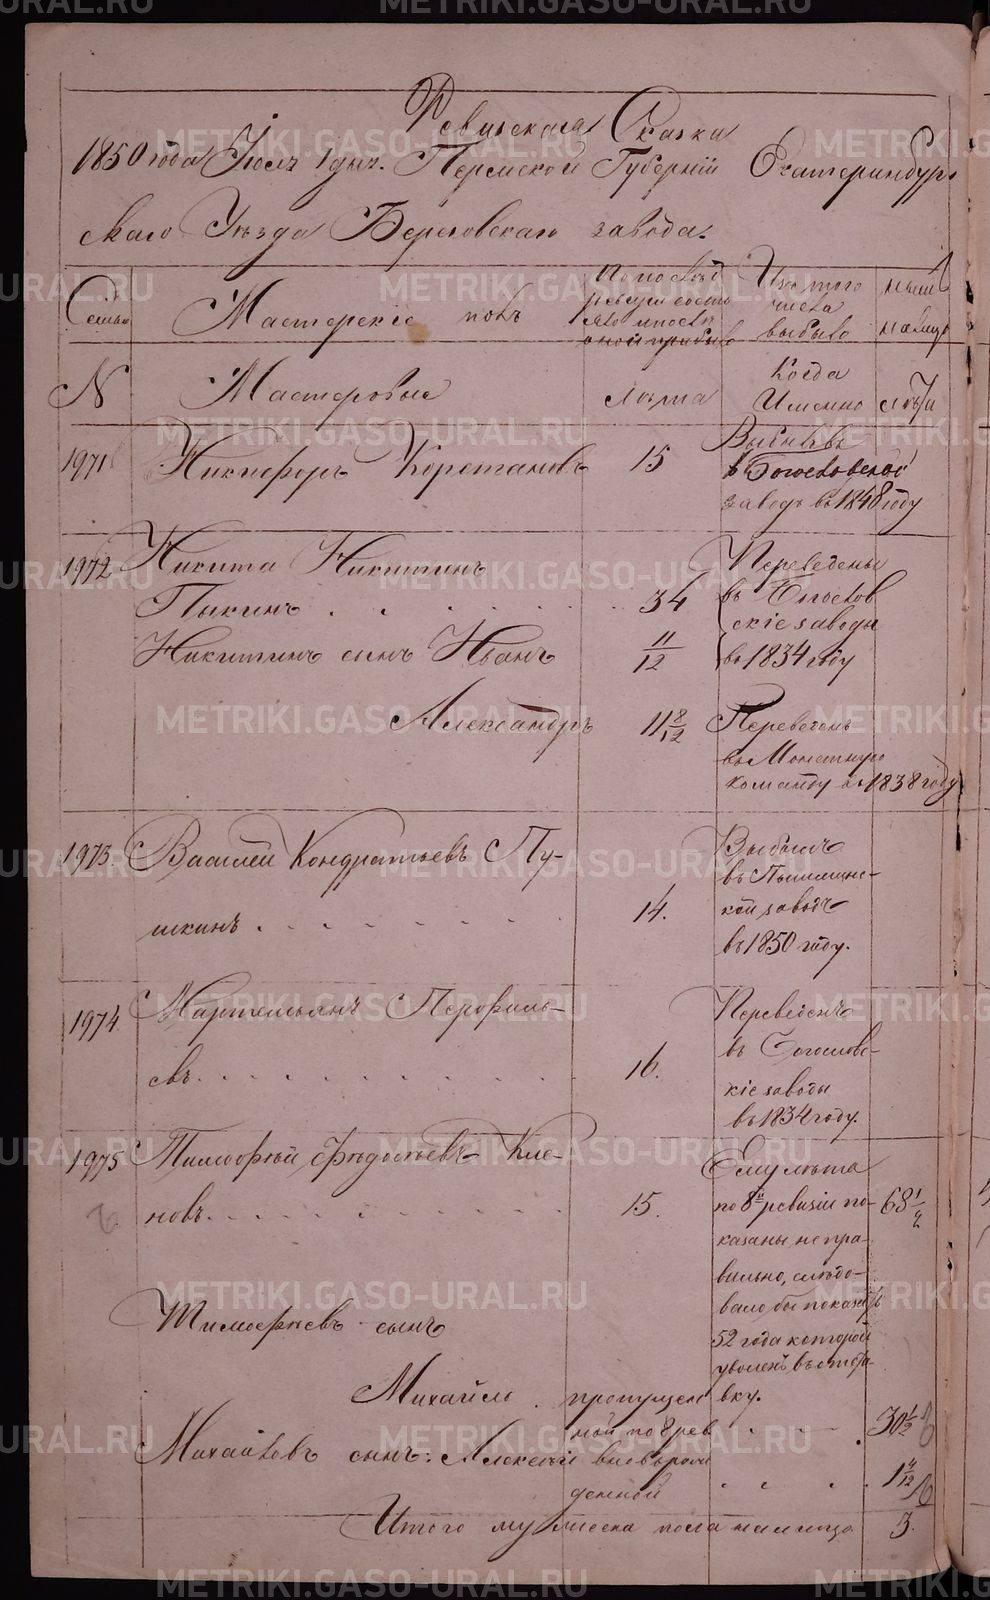 Ревизская Сказка
1850 года Июля 1 дня. Пермской Губерній Екатеринбург
скаго Уѣзда Березовскаго завода.
Семьи
Мастерскіе полъ
По послѣд
ревизіи состо
яло и послѣ
оной прибыло
Изъ того
числа
выбыло
нынѣ
на лицо
N
Мастеровые
Лѣта
Когда
Именно
лѣта
1971
Никифоръ Коротановъ
15
Выбылъ въ
Богословской
заводъ въ 1848 году
1972
Никита Никитинъ
Пыкинъ . . . . . . .
34
Переведены
въ Богослов
скіе заводы
въ 1834 году
Никитинъ сынъ Иванъ
11/12
Александръ
11 8/12
Переведенъ
въ Монетную
команду въ 1838 году
1973
Василей Кондратьевъ Пу-
шкинъ . . . . . . .
14.
Выбылъ
въ Пышмин-
кой заводъ
въ 1850 году.
1974
Мартемьянъ Перфиль-
евъ. . . . . . . . . .
16.
Переведенъ
въ Богословс-
кіе заводы
въ 1834 году.
1975
Тимофѣй Федосѣевъ Кле-
новъ. . . . . . . . .
15.
Ему лѣта
по 8й ревизіи по-
казаны не пра-
вильно, слѣдо-
вало бы показать
52 года которой
уволенъ въ отста-
вку.
68 1/2
Тимофѣевъ сынъ
Михайло .
пропущен
ной по 8 рев.
30 1/2
Михайловъ сынъ: Алексѣй
вновь рож
денной
1 4/12
Итого мужеска пола на лицо
3.
METRIKI.GASO-URAL.RU